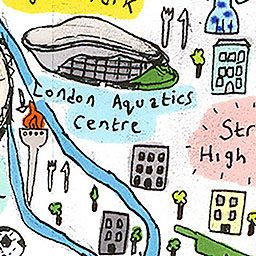 London Aquatics
Centre
Str
High